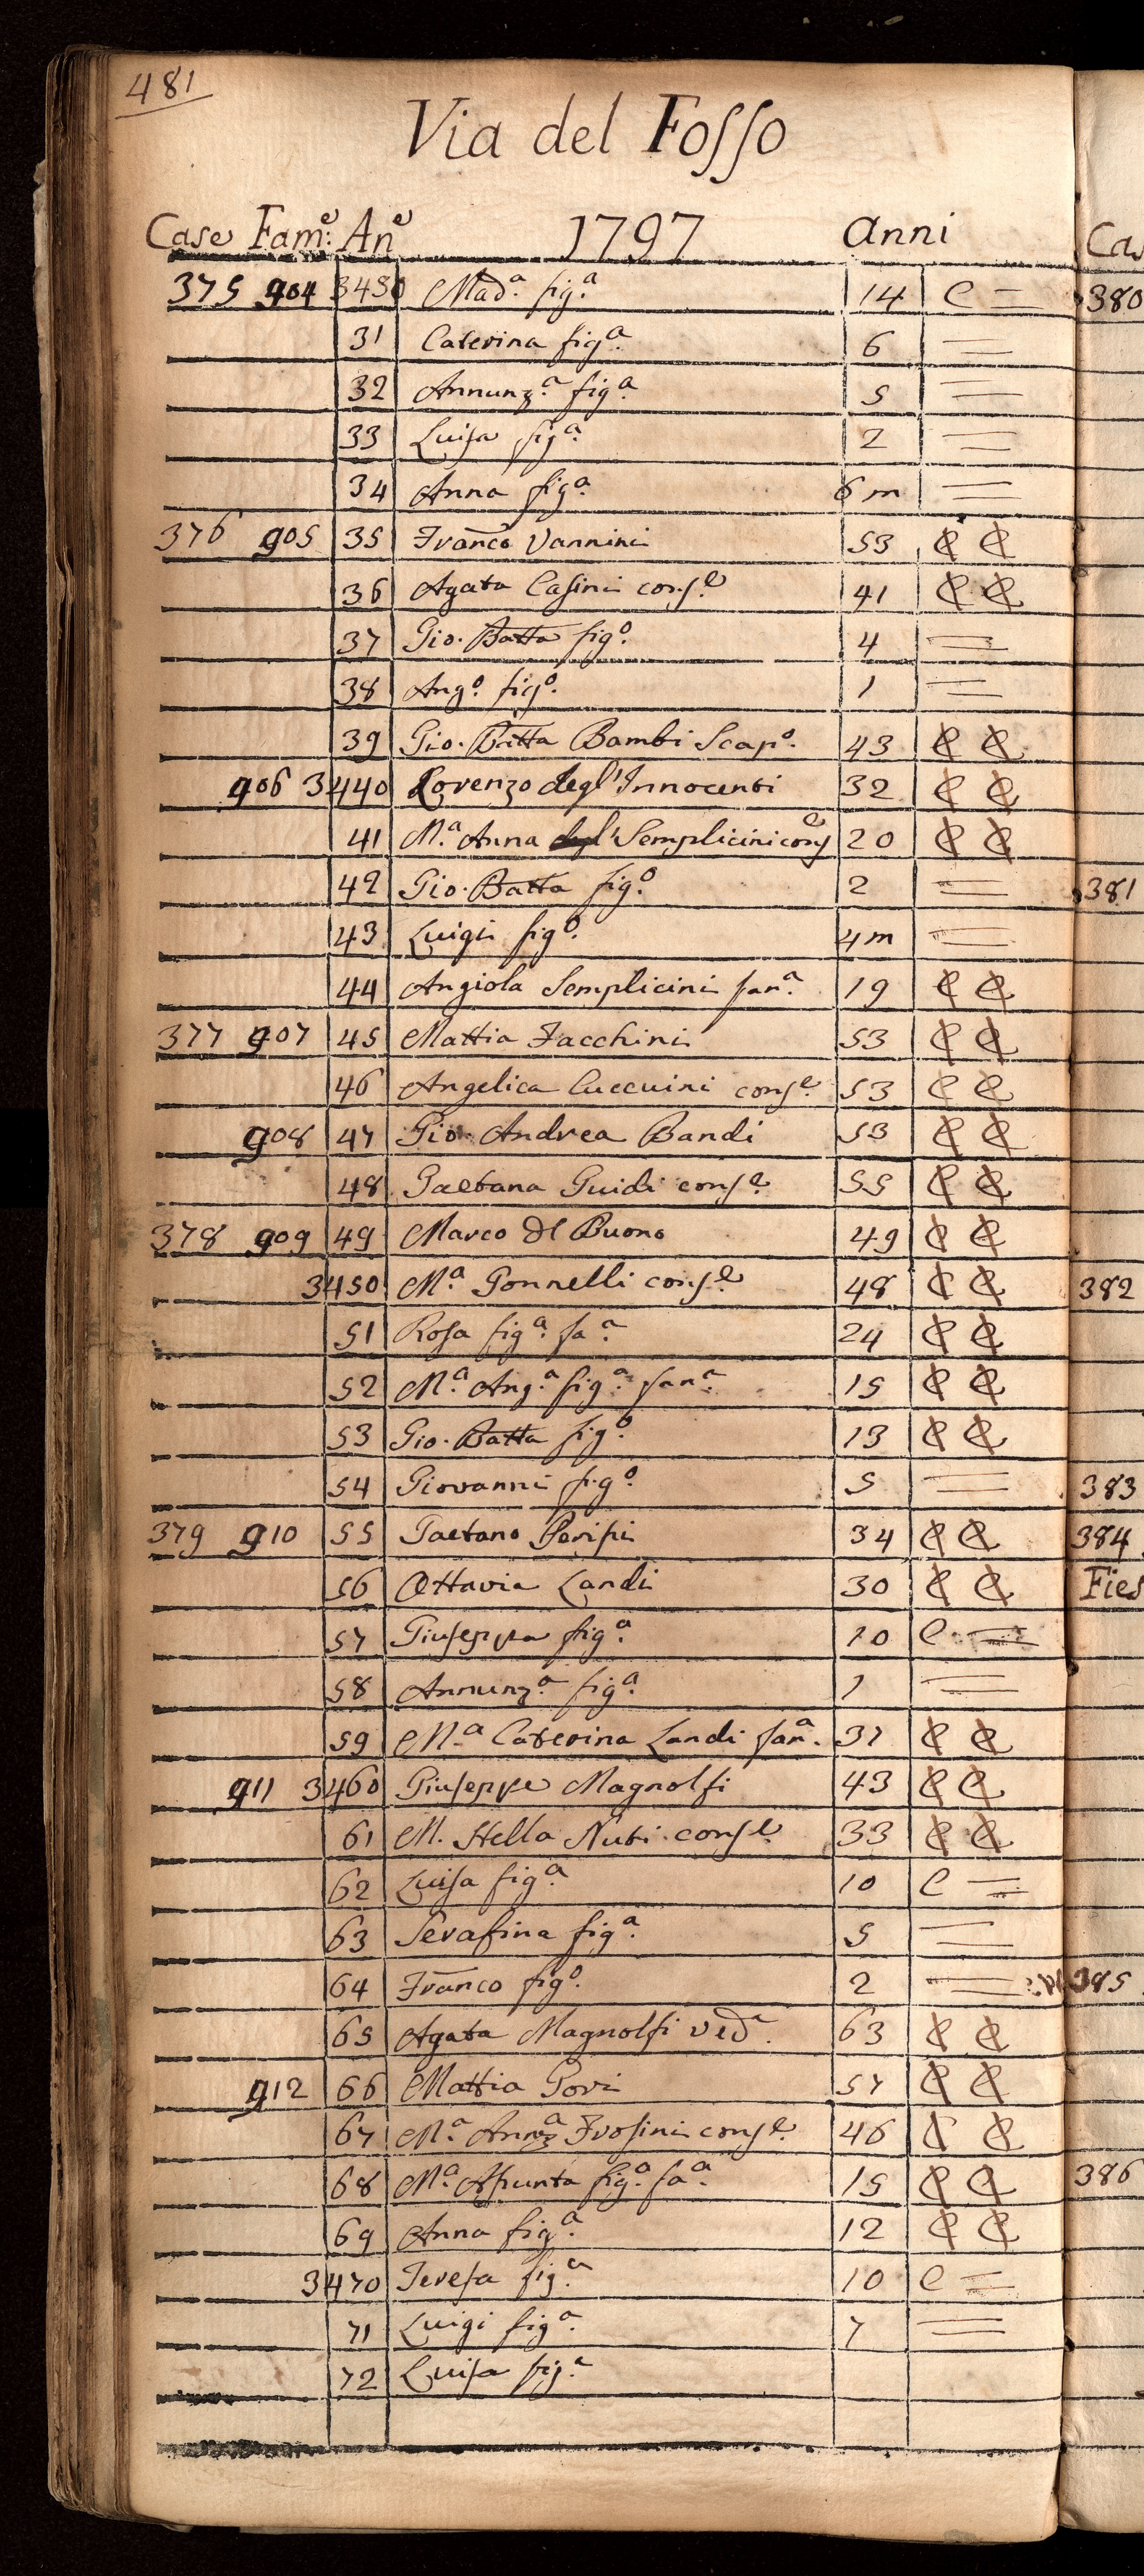 481
Via del Fosso
Case Fam.e An.e 1797 Anni
375 904 3430 Mad.a fig.a 14 C =
31 Caterina fig.a 6 =
32 Annunz.a fig.a 5 =
33 Luisa fig.a 2 =
34 Anna fig.a 6 m =
376 905 35 Franco Vannini 53 C C
36 Agata Casini cons.e 41 C C
37 Gio. Batta fig.o 4 =
38 Ang.o fig.o 1 =
39 Gio. Batta Bambi Scap.o 43 C C
906 3440 Lorenzo degl'Innocenti 32 C C
41 M.a Anna degl' Semplicini cons.e 20 C C
42 Gio. Batta fig.o 2 =
43 Luigi fig.o 4 m =
44 Angiola Semplicini fan.a 19 C C
377 907 45 Mattia Facchini 53 C C
46 Angelica Cuccuini cons.e 53 C C
908 47 Gio. Andrea Bandi 53 C C
48 Gaetana Guidi cons.e 55 C C
378 909 49 Marco del Buono 49 C C
3450 M.a Gonnelli cons.e 48 C C
51 Rosa fig.a fa.a 24 C C
52 M.a Ang.a fig.a fan.a 15 C C
53 Gio. Batta fig.o 13 C C
54 Giovanni fig.o 5 =
379 910 55 Gaetano Parisi 34 C C
56 Ottavia Landi 30 C C
57 Giuseppa fig.a 10 C =
58 Annunz.a fig.a 1 =
59 M.a Caterina Landi fan.a 31 C C
911 3460 Giuseppe Magnolfi 43 C C
61 M. Stella Nuti cons.e 33 C C
62 Luisa fig.a 10 C =
63 Serafina fig.a 5 =
64 Franco fig.o 2 =
65 Agata Magnolfi ved.a 63 C C
912 66 Mattia Gori 57 C C
67 M.a Annz.a Frosini cons.e 46 C C
68 M.a Assunta fig.a fa.a 15 C C
69 Anna fig.a 12 C C
3470 Teresa fig.a 10 C =
71 Luigi fig.a 7 =
72 Luisa fig.a
Ca
380
381
382
383
384
Fies
385
386